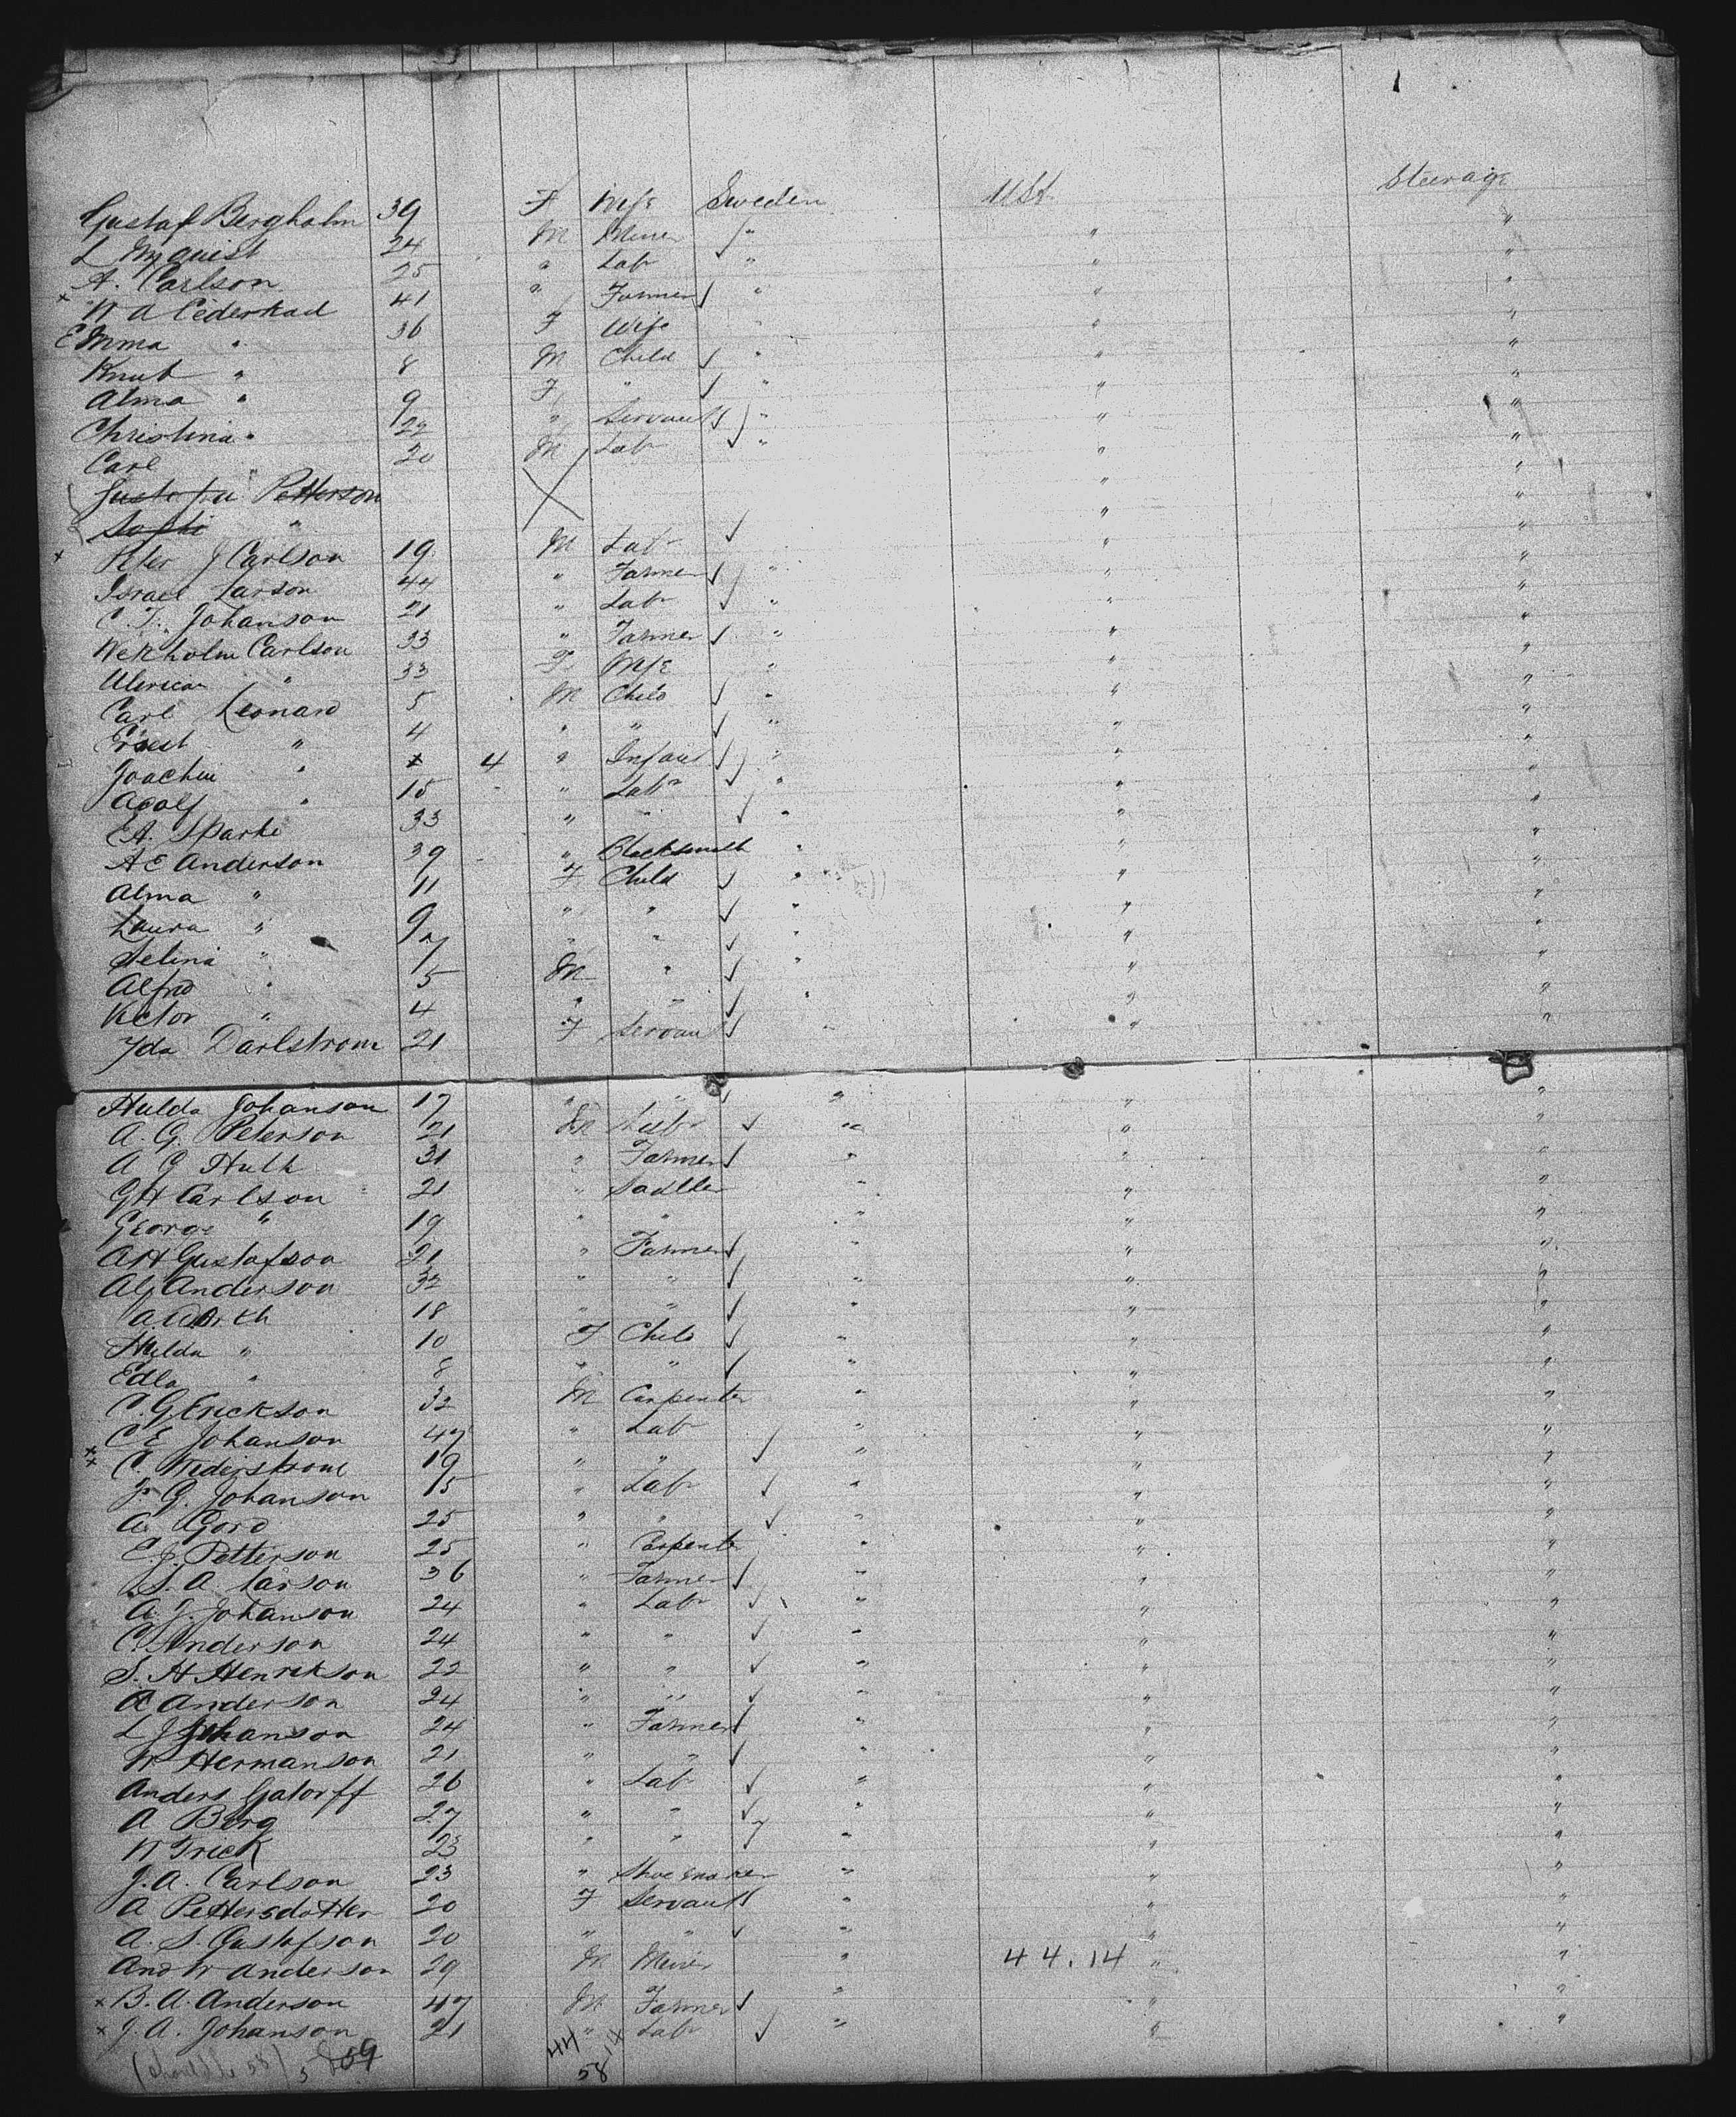 Gustaf Bergholm 39 F Wife Sweden USA Steerage
L Myquist 24 M Miner " " "
A. Carlson 25 " Lab " " "
x N A Cederkad 41 " Farmer " " "
Emma " 36 F Wife " " "
Knut " 8 M Child " " "
Alma " 9 F " " " "
Christina " 22 " Servant " " "
Carl " 20 M Lab " " "
Gustafa Petterson " "
Sophi " " "
x Peter J Carlson 19 M Lab " "
Israel Larson 44 " Farmer " " "
C. F. Johanson 21 " Lab " " "
Wekholm Carlson 33 " Farmer " " "
Ulrica " 33 F Wife " " "
Carl Leonard 5 M Child " " "
Ernest " 4 " " " " "
Joachim " 4 " Infant " " "
Adolf " 15 " Labr " " "
E A. Sparke 33 " " " " "
A E Anderson 39 " Blacksmith " " "
Alma " 11 F Child " " "
Laura " 9 " " " " "
Selina " 7 " " " " "
Alfred " 5 M " " " "
Victor " 4 " " " " "
Ida Darlstrom 21 F Servant " " "
Hulda Johanson 17 " " " " "
A. G. Peterson 21 M Labr " " "
A G Hulh 31 " Farmer " " "
G H Carlson 21 " Sadller " " "
George " 19 " " " " "
A H Gustafson 21 " Farmer " " "
A G Anderson 32 " " " " "
18 " " " " "
Hulda " 10 F Child " " "
Edla " 8 " " " " "
C. G Erickson 32 M Carpenter " " "
C E Johanson 47 " Lab " " "
x C. Wederstrom 19 " " " " "
J. G. Johanson 15 " Lab " " "
A. Gord 25 " " " " "
E. J. Petterson 25 " Carpenter " " "
S. A. Larson 36 " Farmer " " "
A. J. Johanson 24 " Lab " " "
C. Anderson 24 " " " " "
S. H Henrikson 22 " " " " "
A Anderson 24 " " " " "
L J Johanson 24 " Farmer " " "
N Hermanson 21 " " " " "
Anders Gatorff 26 " Lab " " "
A Berg 27 " " " " "
N Frick 23 " " " " "
J. A. Carlson 23 " Shoemaker " " "
A Pettersdotter 20 F Servant " " "
A. S. Gustafson 20 " " " " "
And W Anderson 29 M Miner " 44.14 " "
x B. A. Anderson 47 M Farmer " " "
x J. A. Johanson 21 " Lab " " "
(should be 58) 59 44 14
58